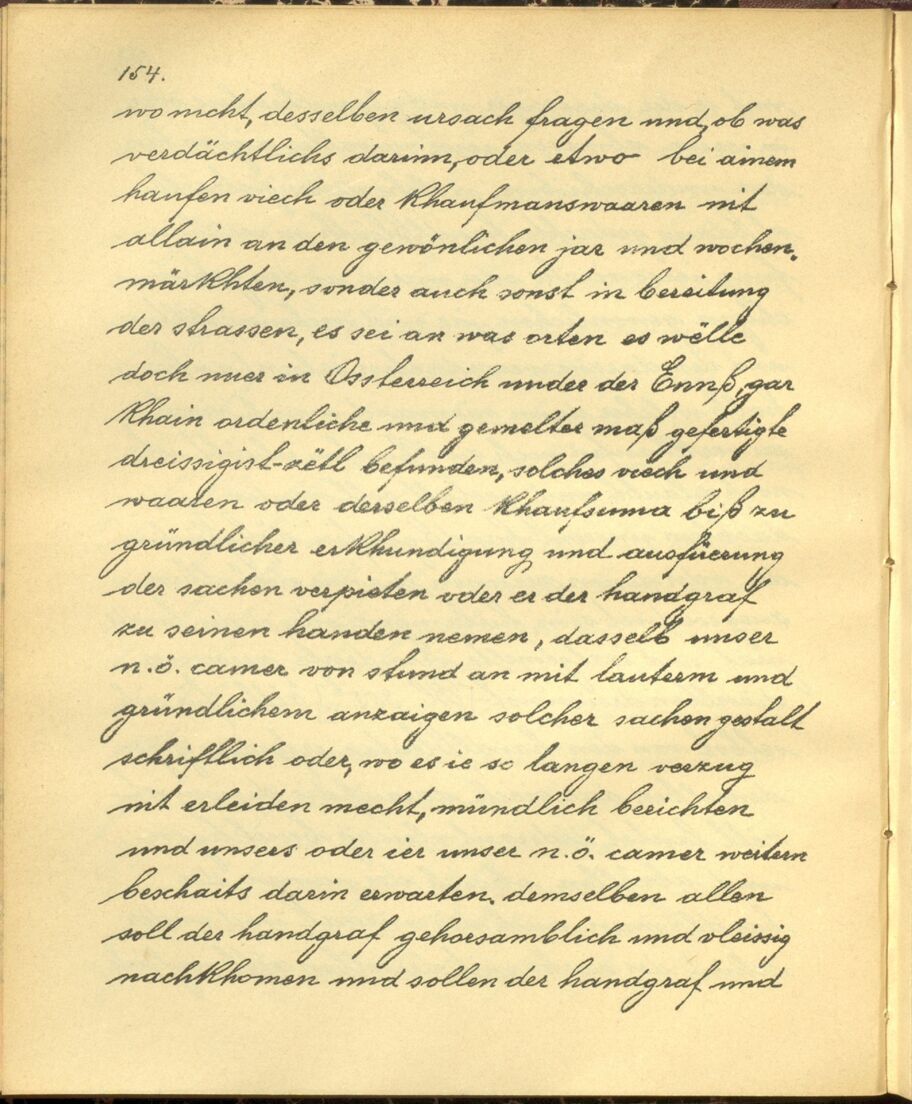 154.
wo nicht, desselben ursach fragen und, ob was
verdächtlichs darinn, oder etwo bei ainem
haufen viech oder khaufmanswaaren nit
allain an den gewönlichen jar und wochen-
märkhten, sonder auch sonst in bereitung
der strassen, es sei an was orten es wëlle
doch nuer in Össterreich under der Ennß, gar
khain ordenliche und gemelter maß gefertigte
dreissigist-zëtl befunden, solches viech und
waaren oder derselben khaufsuma biß zu
gründlicher erkhundigung und ausfüerung
der sachen verpieten oder er der handgraf
zu seinen handen nemen, dasselb unser
n.ö. camer von stund an mit lauterm und
gründlichem anzaigen solcher sachen gestalt
schriftlich oder, wo es ie so langen verzug
nit erleiden mecht, mündlich berichten
und unsers oder ier unser n.ö. camer weitern
beschaits darin erwarten. demselben allen
soll der handgraf gehorsamblich und vleissig
nachkhomen und sollen der handgraf und